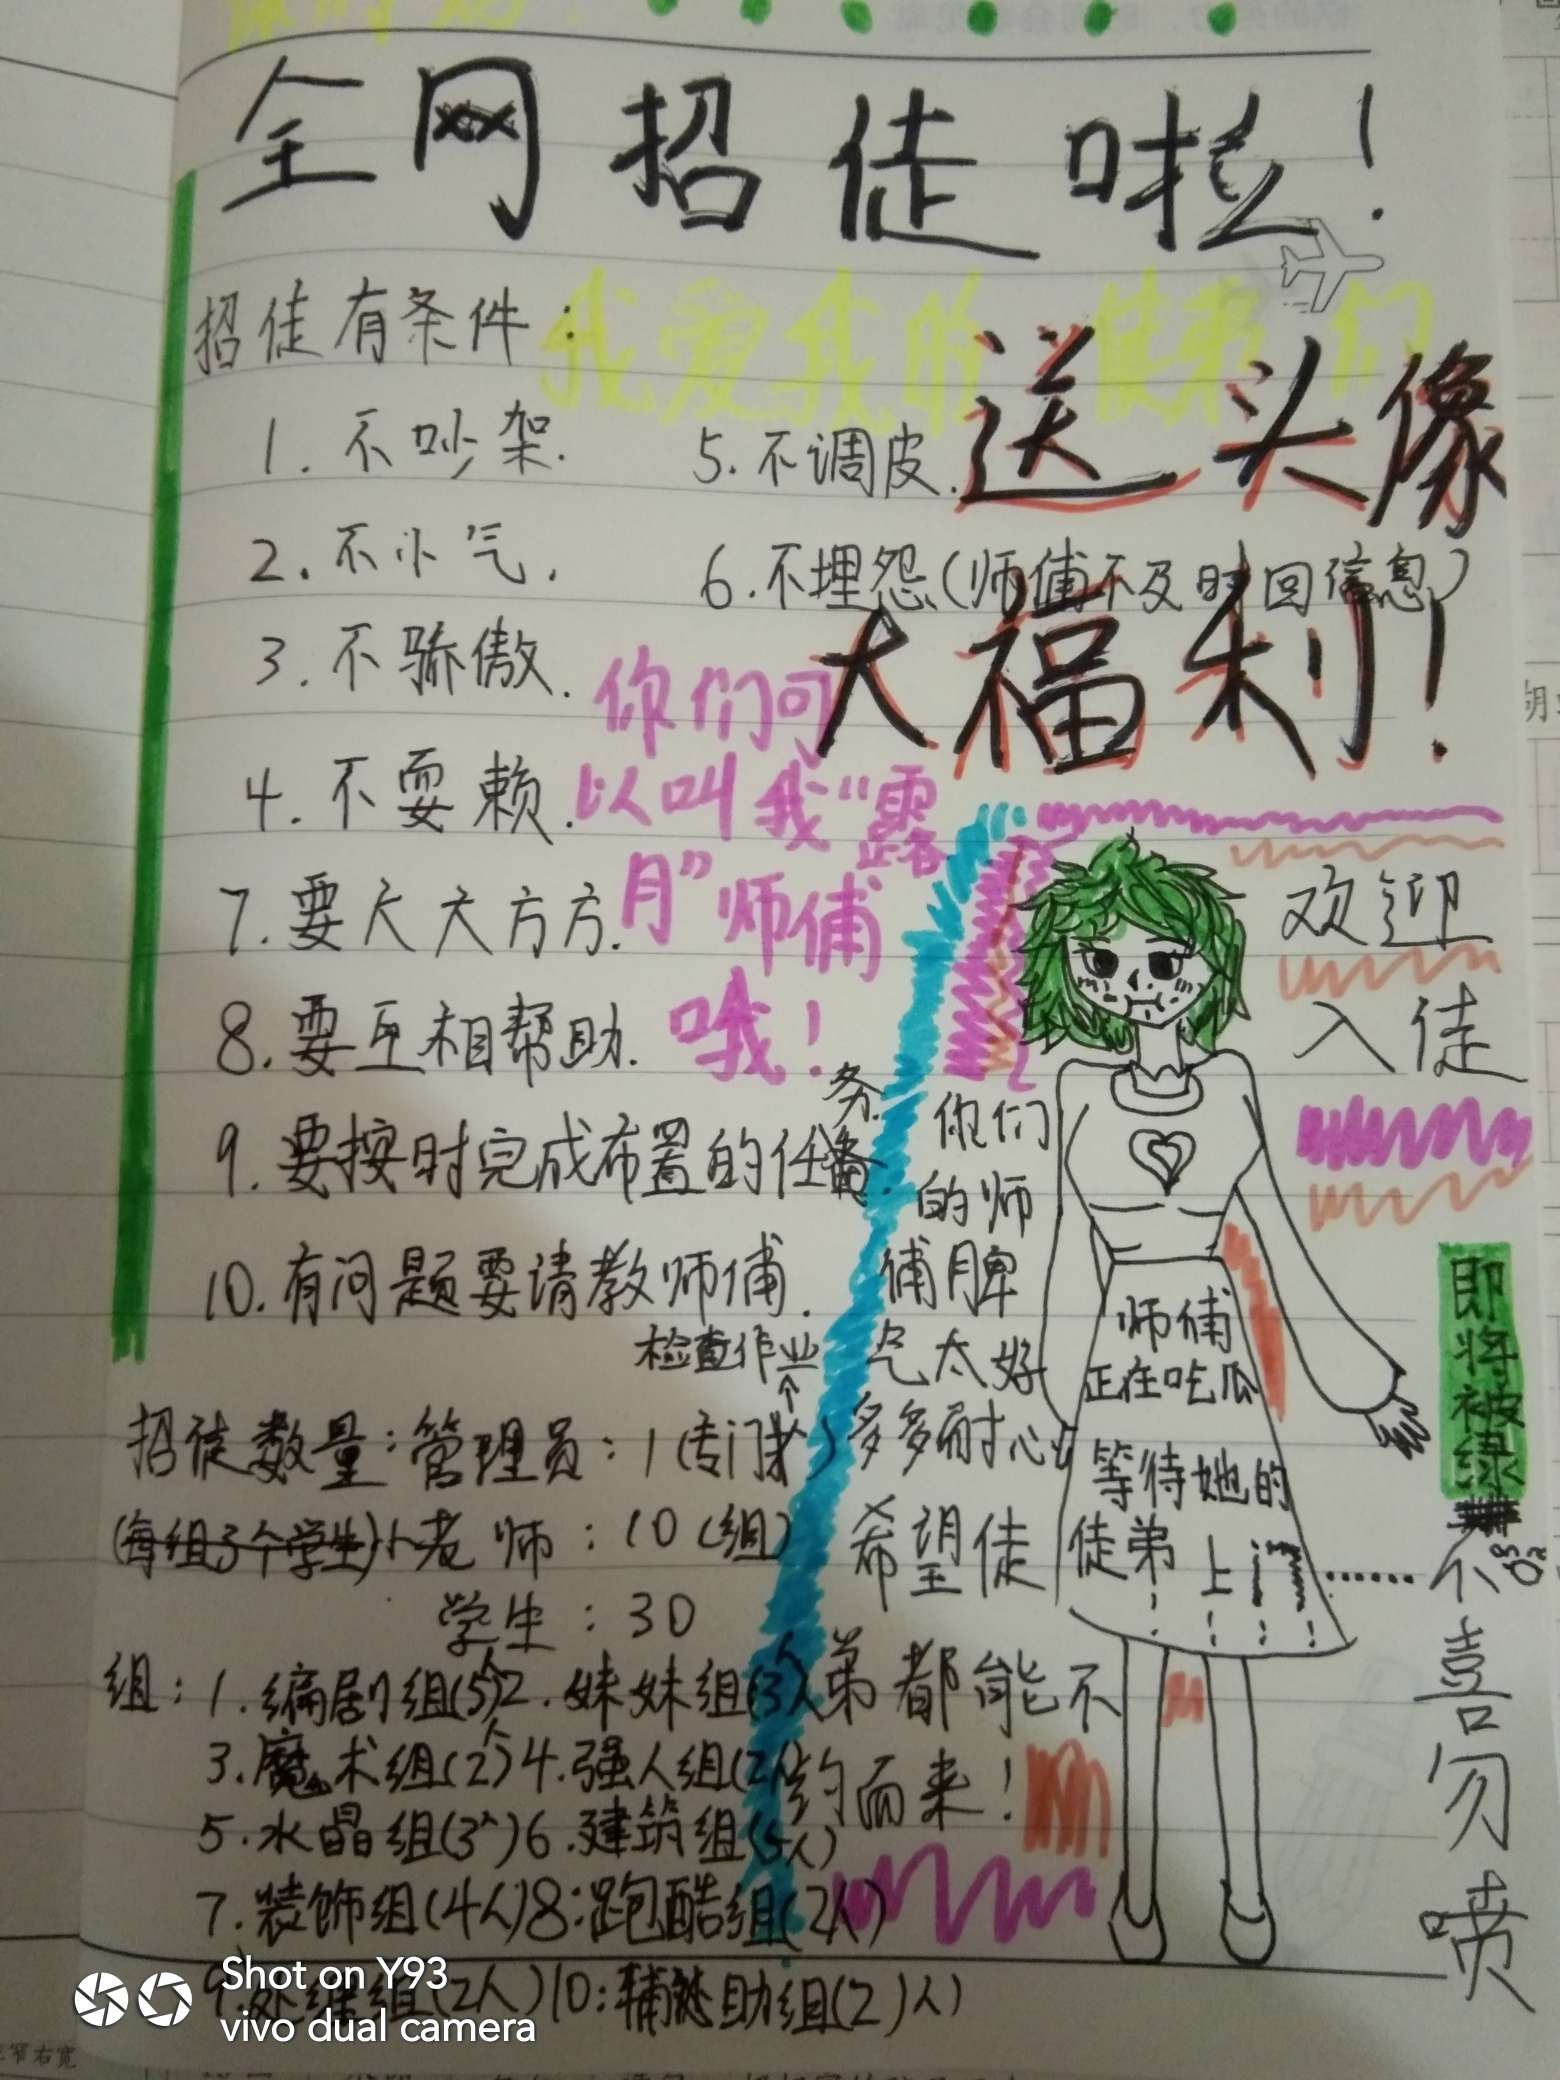 全网招徒啦！
招徒有条件：
我爱我的徒弟们
送头像
大福利！
1.不吵架.
2.不小气.
3.不骄傲.
4.不耍赖.
5.不调皮.
6.不埋怨(师傅不及时回信息)
7.要大大方方.
8.要互相帮助.
9.要按时完成布置的任务.
10.有问题要请教师傅.
你们可
以叫我“露
月”师傅
哦！
检查作业
招徒数量：管理员：1(专门)
(每组3个学生)小老师：10(组)
学生：30
组：1.编剧组(5人)2.妹妹组(3人)
3.魔术组(2人)4.强人组(2人)
5.水晶组(3人)6.建筑组(5人)
7.装饰组(4人)8:跑酷组(2人)
9.组(2人)10:辅助组(2)人)
你们
的师
傅脾
气太好
多多耐心
希望徒
弟都能不
约而来！
欢迎
入徒
师傅
正在吃瓜
等待她的
徒弟上门
……
即将被绿
不喜勿喷
Shot on Y93
vivo dual camera